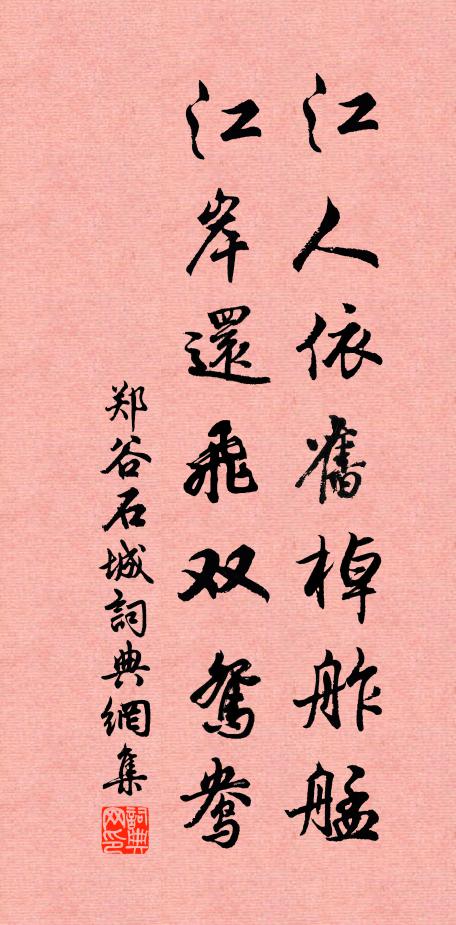 江人依舊棹舴艋
江岸還飛双鴛鴦
郑谷石城詞典網集
詞典网印